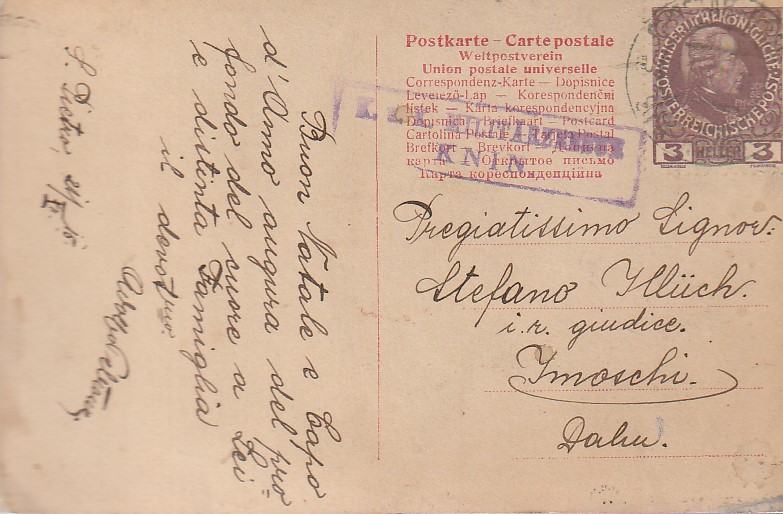 Postkarte – Carte postale
Weltpostverein
Union postale universelle
Correspondenz-Karte – Dopisnice
Levelező-Lap – Korespondenční
lístek – Karta korespondencyjna
Dopisnica – Briefkaart – Postcard
Cartolina Postale – Tarjeta Postal
Brefkort – Brevkort – Дописна
карта – Открытое письмо
Карта кореспонденційна
KNIN
3 HELLER 3
Pregiatissimo Signor:
Stefano Illich.
i. r. giudice.
Imoschi.
Dalm.
Buon Natale e Capo
d'Anno augura del pro=
fondo del cuore a Lei
e distinta Famiglia
il devotmo.
S. Pietro,